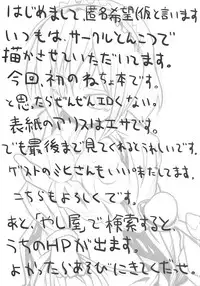 はじめまして、匿名希望(仮と言います
いつもは、サークルとんこつで
描かさせていただいてます。
今回、初のねちょ本です。
と思ったらぜんぜんエロくない。
表紙のアリスはエサです。
でも最後まで見てくれるとうれしいです。
ゲストのみとさんもいい𛀁
こちらもよろしくです。
あと、「やし屋」で検索すると、
うちのHPが出ます。
よかったらあそびにきてくだっせ。